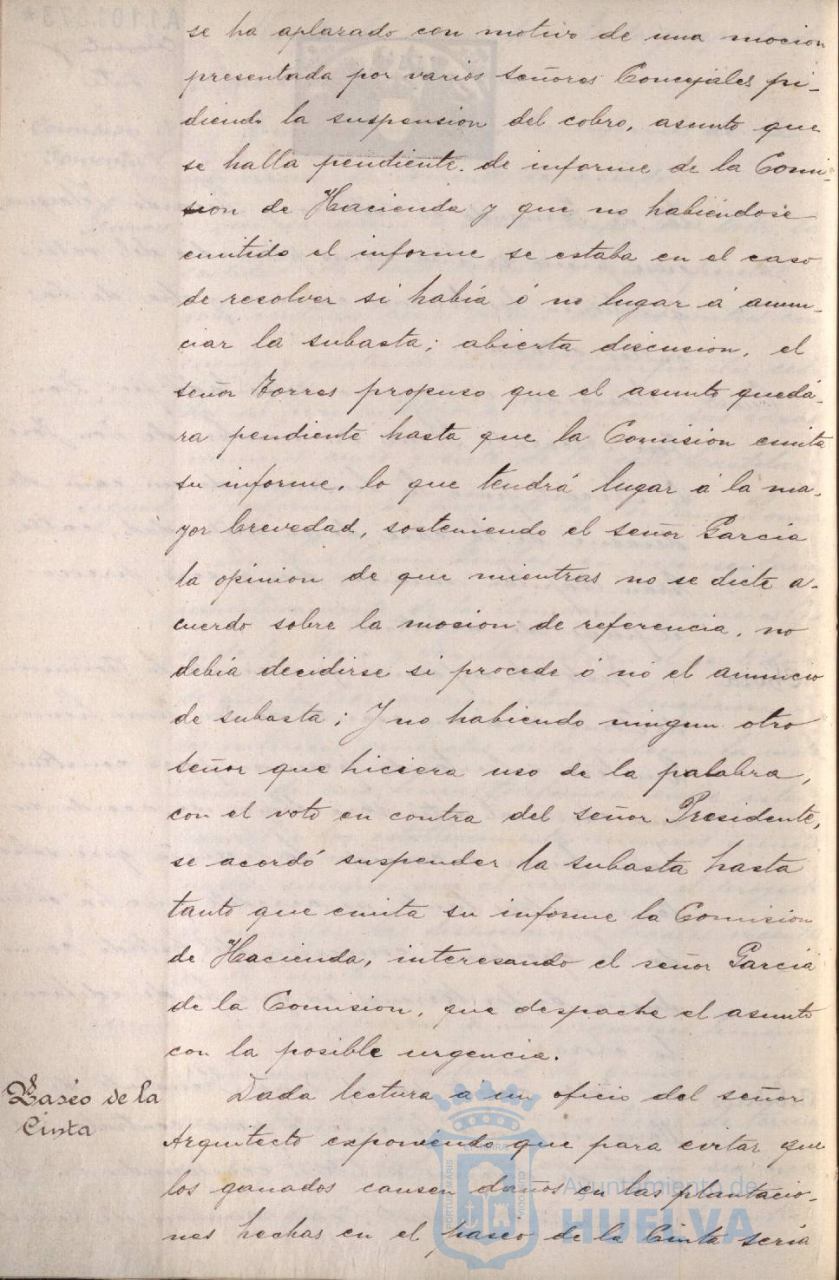 se ha aplazado con motivo de una mocion
presentada por varios señores Concejales pi-
diendo la suspension del cobro, asunto que
se halla pendiente de informe de la Comi-
sion de Hacienda y que no habiéndose
emitido el informe se estaba en el caso
de resolver si había ó no lugar á anun-
ciar la subasta; abierta discusion, el
señor Torres propuso que el asunto quedá-
ra pendiente hasta que la Comision emita
su informe, lo que tendrá lugar á la ma-
yor brevedad, sosteniendo el señor Garcia
la opinion de que mientras no se dicte a-
cuerdo sobre la mosion de referencia, no
debía decidirse si procede ó nó el anuncio
de subasta; Y no habiendo ningun otro
señor que hiciera uso de la palabra,
con el voto en contra del señor Presidente,
se acordó suspender la subasta hasta
tanto que emita su informe la Comision
de Hacienda, interesando el señor Garcia
de la Comision, que despache el asunto
con la posible urgencia.
Paseo de la
Cinta
Dada lectura a un oficio del señor
Arquitecto exponiendo que para evitar que
los ganados causen daños en las plantacio-
nes hechas en el paseo de la Cinta sería
Ayuntamiento de
HUELVA